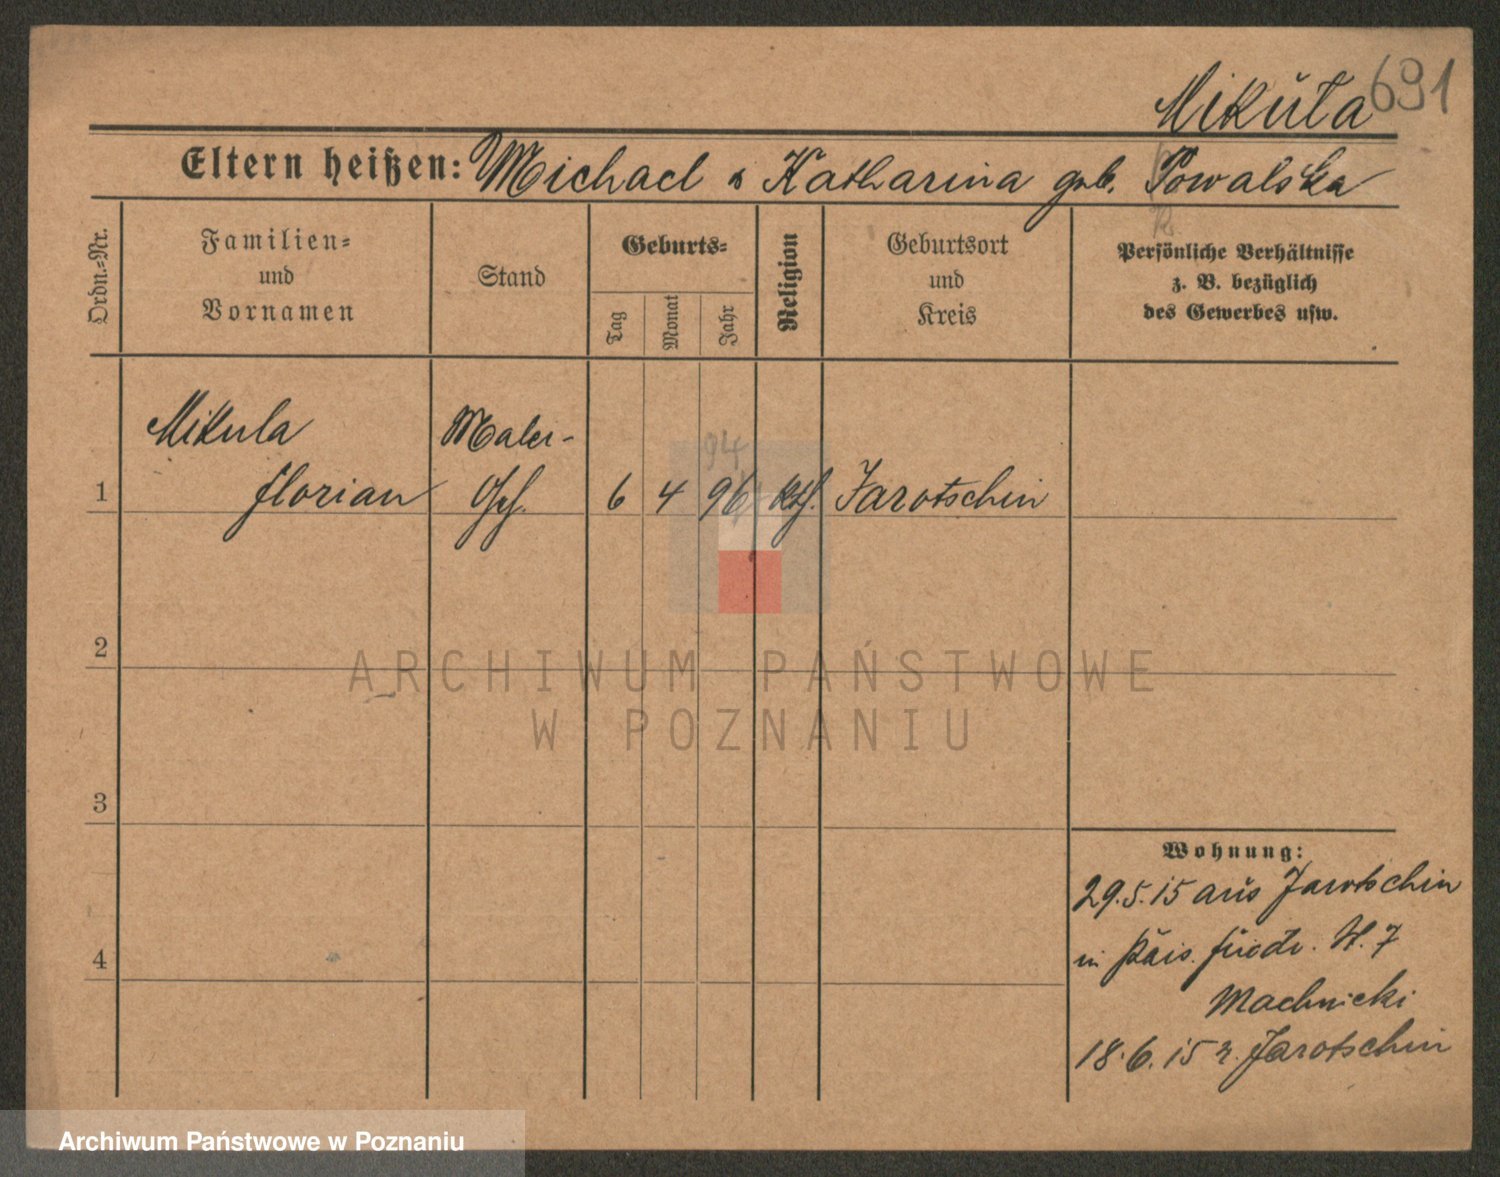 691
Mikŭła
Eltern heißen: Michael & Katharina geb. Powalska
Ordn.-Nr.
Familien- und Vornamen
Stand
Geburts-
Tag
Monat
Jahr
Religion
Geburtsort und Kreis
Persönliche Verhältnisse z. B. bezüglich des Gewerbes usw.
94
1 Mikula Florian Maler- 6 4 96 kth. Jarotschin
2
3
4
Wohnung:
29.5.15 aŭs Jarotschin
in friedr. W. 7
Machnicki
18.6.15 n. Jarotschin
ARCHIWUM PAŃSTWOWE
W POZNANIU
Archiwum Państwowe w Poznaniu